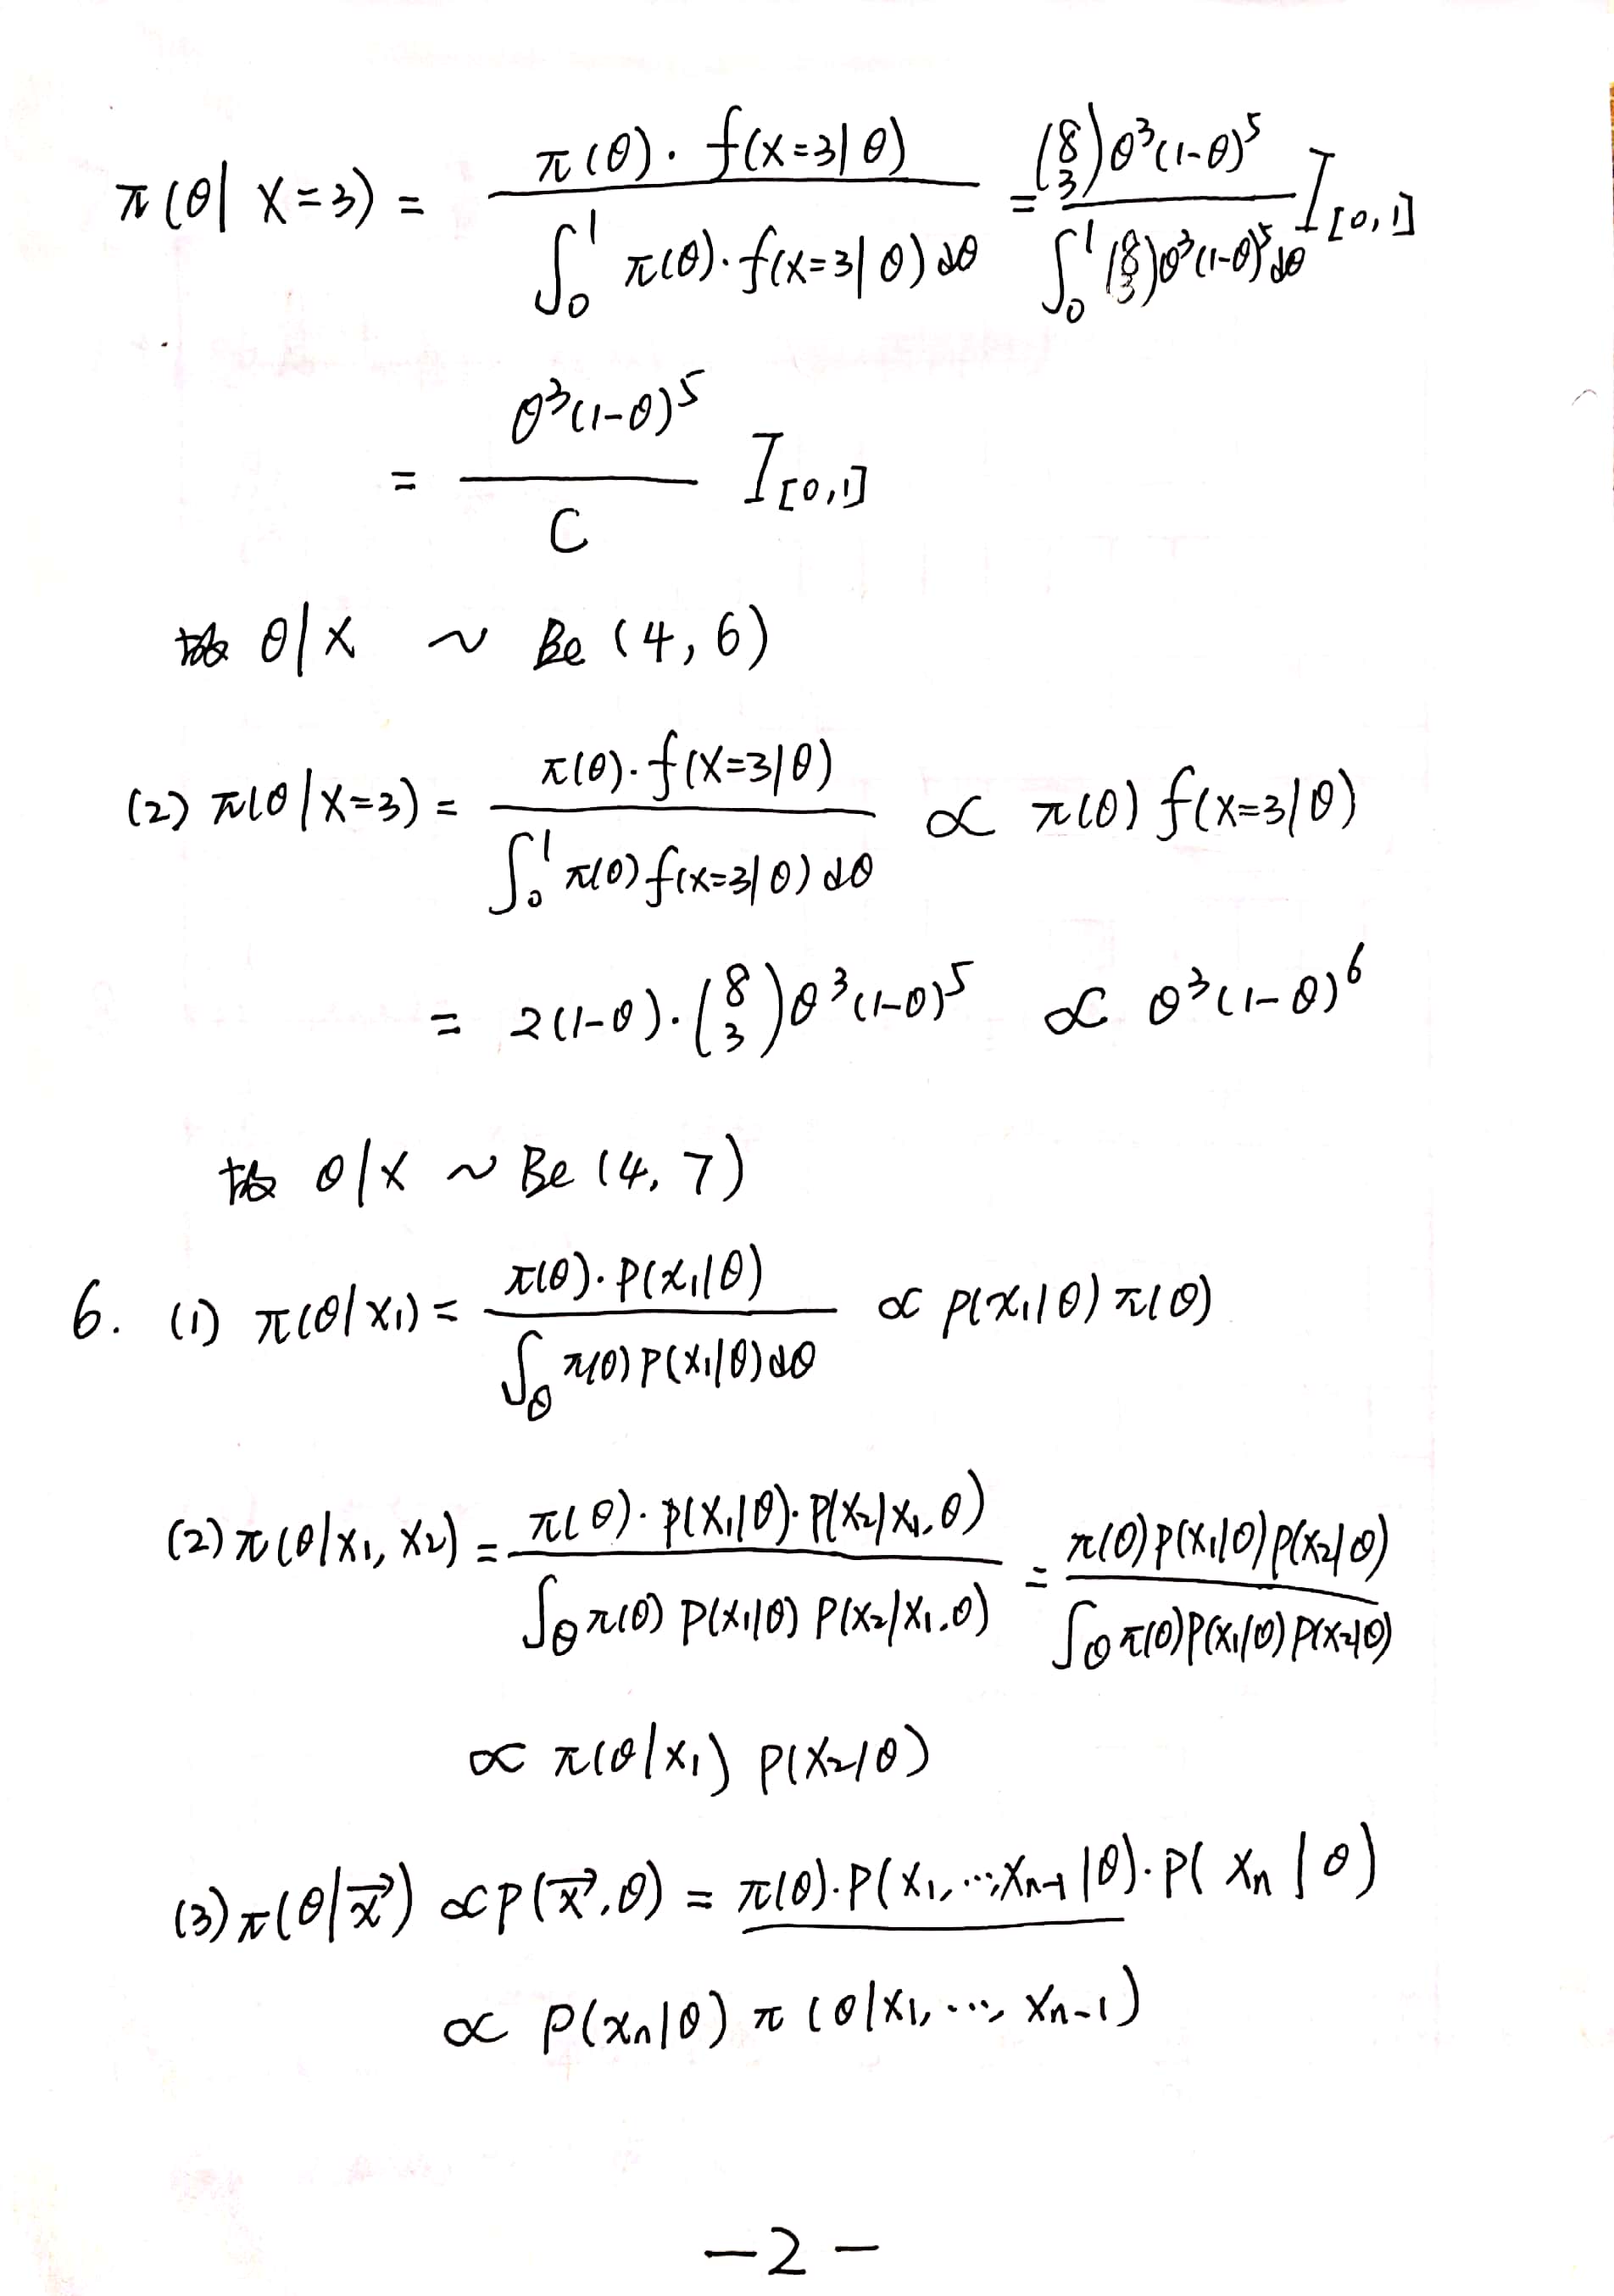 π(θ| X=3) = \frac{π(θ)·f(X=3|θ)}{\int_0^1 π(θ)·f(X=3|θ)dθ} = \frac{\binom{8}{3}θ^3(1-θ)^5}{\int_0^1 \binom{8}{3}θ^3(1-θ)^5dθ} I_{[0,1]}
= \frac{θ^3(1-θ)^5}{C} I_{[0,1]}
故 θ|X ~ Be (4,6)
(2) π(θ|X=3) = \frac{π(θ)·f(X=3|θ)}{\int_0^1 π(θ)f(X=3|θ)dθ} ∝ π(θ) f(X=3|θ)
= 2(1-θ)·\binom{8}{3}θ^3(1-θ)^5 ∝ θ^3(1-θ)^6
故 θ|X ~ Be (4,7)
6. (1) π(θ|x_1) = \frac{π(θ)·P(x_1|θ)}{\int_θ π(θ)P(x_1|θ)dθ} ∝ p(x_1|θ)π(θ)
(2) π(θ|x_1, x_2) = \frac{π(θ)·p(x_1|θ)·P(x_2|x_1,θ)}{\int_θ π(θ) P(x_1|θ) P(x_2|x_1,θ)} = \frac{π(θ)p(x_1|θ)p(x_2|θ)}{\int_θ π(θ)P(x_1|θ)P(x_2|θ)}
∝ π(θ|x_1) p(x_2|θ)
(3) π(θ|\vec{x}) ∝ p(\vec{x},θ) = π(θ)·P(x_1,⋯,x_{n-1}|θ)·P(x_n|θ)
∝ P(x_n|θ) π(θ|x_1, ⋯, x_{n-1})
-2-